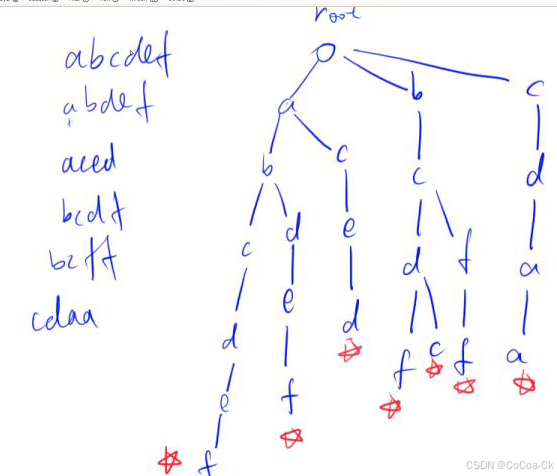 root
abcdef
abdef
aced
bcdf
bcff
cdaa
a
b
c
b
c
c
d
c
d
e
d
f
a
d
e
d
f
c
f
a
e
f
f
CSDN @CoCoa-Ck